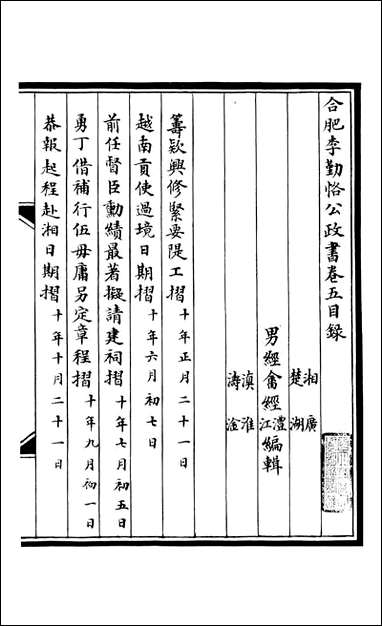 合肥李勤恪公政書卷五目錄
湘廣
楚湖
男經畬經澧江編輯
滇淮
濤淦
籌款興修緊要隄工摺 十年正月二十一日
越南貢使過境日期摺 十年六月初七日
前任督臣勳績最著擬請建祠摺 十年七月初五日
勇丁借補行伍毋庸另定章程摺 十年九月初一日
恭報起程赴湘日期摺 十年十月二十一日